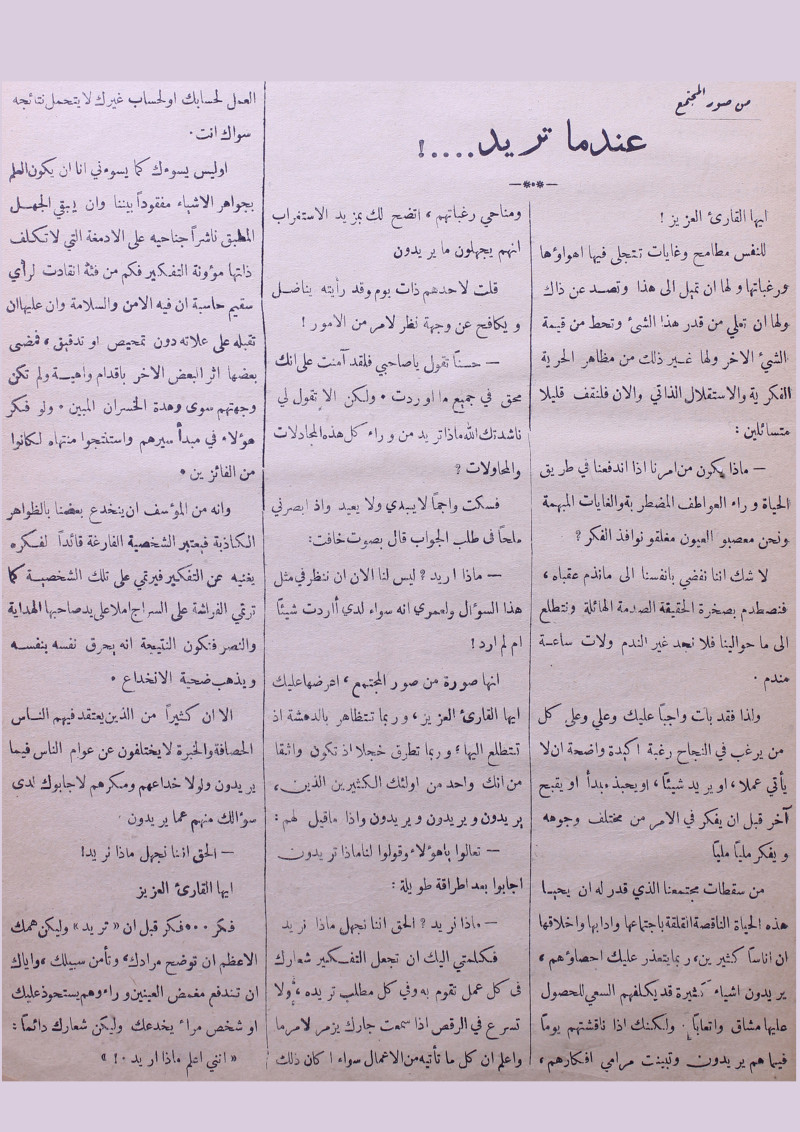 من صور المجتمع
عندما تريد....!
ايها القارئ العزيز !
للنفس مطامح وغايات تتجلى فيها اهواؤها
ورغباتها ولها ان تميل الى هذا وتصد عن ذاك
ولها ان تعلي من قدر هذا الشئ وتحط من قيمة
الشئ الاخر ولها غير ذلك من مظاهر الحرية
الفكرية والاستقلال الذاتي والان فلنقف قليلا
متسائلين :
— ماذا يكون من امرنا اذا اندفعنا في طريق
الحياة وراء العواطف المضطربة والغايات المبهمة
ونحن معصبو العيون مغلقو نوافذ الفكر ؟
لا شك اننا نفضي بانفسنا الى مانذم عقباه ،
فنصطدم بصخرة الحقيقة الصدمة الهائلة ونتطلع
الى ما حوالينا فلا نجد غير الندم ولات ساعة
مندم .
ولذا فقد بات واجباً عليك وعلي وعلى كل
من يرغب في النجاح رغبة اكيدة واضحة ان لا
يأتي عملا ، او يريد شيئاً ، او يحبذ مبدأ او يقبح
آخر قبل ان يفكر في الامر من مختلف وجوهه
ويفكر ملياً ملياً
من سقطات مجتمعنا الذي قدر له ان يحيا
هذه الحياة الناقصة القلقة باجتماعها وادابها واخلاقها
ان اناساً كثيرين ، ربما يتعذر عليك احصاؤهم ،
يريدون اشياء كثيرة قد يكلفهم السعي للحصول
عليها مشاق واتعاباً . ولكنك اذا ناقشتهم يوماً
فيما هم يريدون وتبينت مرامي افكارهم ،
ومناحي رغباتهم ، اتضح لك بمزيد الاستغراب
انهم يجهلون ما يريدون
قلت لاحدهم ذات يوم وقد رأيته يناضل
ويكافح عن وجهة نظر لامر من الامور !
— حسناً تقول ياصاحبي فلقد آمنت على انك
محق في جميع ما اوردت . ولكن الا تقول لي
ناشدتك الله ماذا تريد من وراء كل هذه المجادلات
والمحاولات ؟
فسكت واجماً لا يبدي ولا يعيد واذ ابصرني
ملحاً في طلب الجواب قال بصوت خافت :
— ماذا اريد ? ليس لنا الان ان ننظر في مثل
هذا السؤال ولعمري انه سواء لدي أاردت شيئاً
ام لم ارد !
انها صورة من صور المجتمع ، اعرضها عليك
ايها القارئ العزيز ، وربما تتظاهر بالدهشة اذ
تتطلع اليها ؛ وربما تطرق خجلا اذ تكون واثقا
من انك واحد من اولئك الكثيرين الذين ،
يريدون ويريدون ويريدون واذا ماقيل لهم :
— تعالوا ياهؤلاء وقولوا لنا ماذا تريدون
اجابوا بعد اطراقة طويلة :
— ماذا نريد ? الحق اننا نجهل ماذا نريد
فكلمتي اليك ان تجعل التفكير شعارك
في كل عمل تقوم به وفي كل مطلب تريده ، ولا
تسرع في الرقص اذا سمعت جارك يزمر لامر ما
واعلم ان كل ما تأتيه من الاعمال سواء اكان ذلك
العمل لحسابك او لحساب غيرك لا يتحمل نتائجه
سواك انت .
اوليس يسوءك كما يسوءني انا ان يكون العلم
بجواهر الاشياء مفقوداً بيننا وان يبقي الجهل
المطبق ناشراً جناحيه على الادمغة التي لا تكلف
ذاتها مؤونة التفكير فكم من فئة انقادت لرأي
سقيم حاسبة ان فيه الامن والسلامة وان عليها ان
تقبله على علاته دون تمحيص او تدقيق ، فمضى
بعضها اثر البعض الاخر باقدام واهية ولم تكن
وجهتهم سوى وهدة الخسران المبين . ولو فكر
هؤلاء في مبدأ سيرهم واستنتجوا منتهاه لكانوا
من الفائزين .
وانه من المؤسف ان ينخدع بعضنا بالظواهر
الكاذبة فيعتبر الشخصية الفارغة قائداً لفكره
يغنيه عن التفكير فيرتمي على تلك الشخصية كما
ترتمي الفراشة على السراج املا على يد صاحبها الهداية
والنصر فتكون النتيجة انه يحرق نفسه بنفسه
ويذهب ضحية الانخداع .
الا ان كثيراً من الذين يعتقد فيهم الناس
الحصافة والخبرة لا يختلفون عن عوام الناس فيما
يريدون ولولا خداعهم ومكرهم لاجابوك لدى
سوالك منهم عما يريدون .
— الحق اننا نجهل ماذا نريد !
ايها القارئ العزيز
فكر ... فكر قبل ان « تريد » وليكن همك
الاعظم ان توضح مرادك، وتأمن سبيلك ، واياك
ان تندفع مغمض العينين وراء وهم يستحوذ عليك
او شخص مراء يخدعك وليكن شعارك دائماً :
« انني اعلم ماذا اريد . ! »